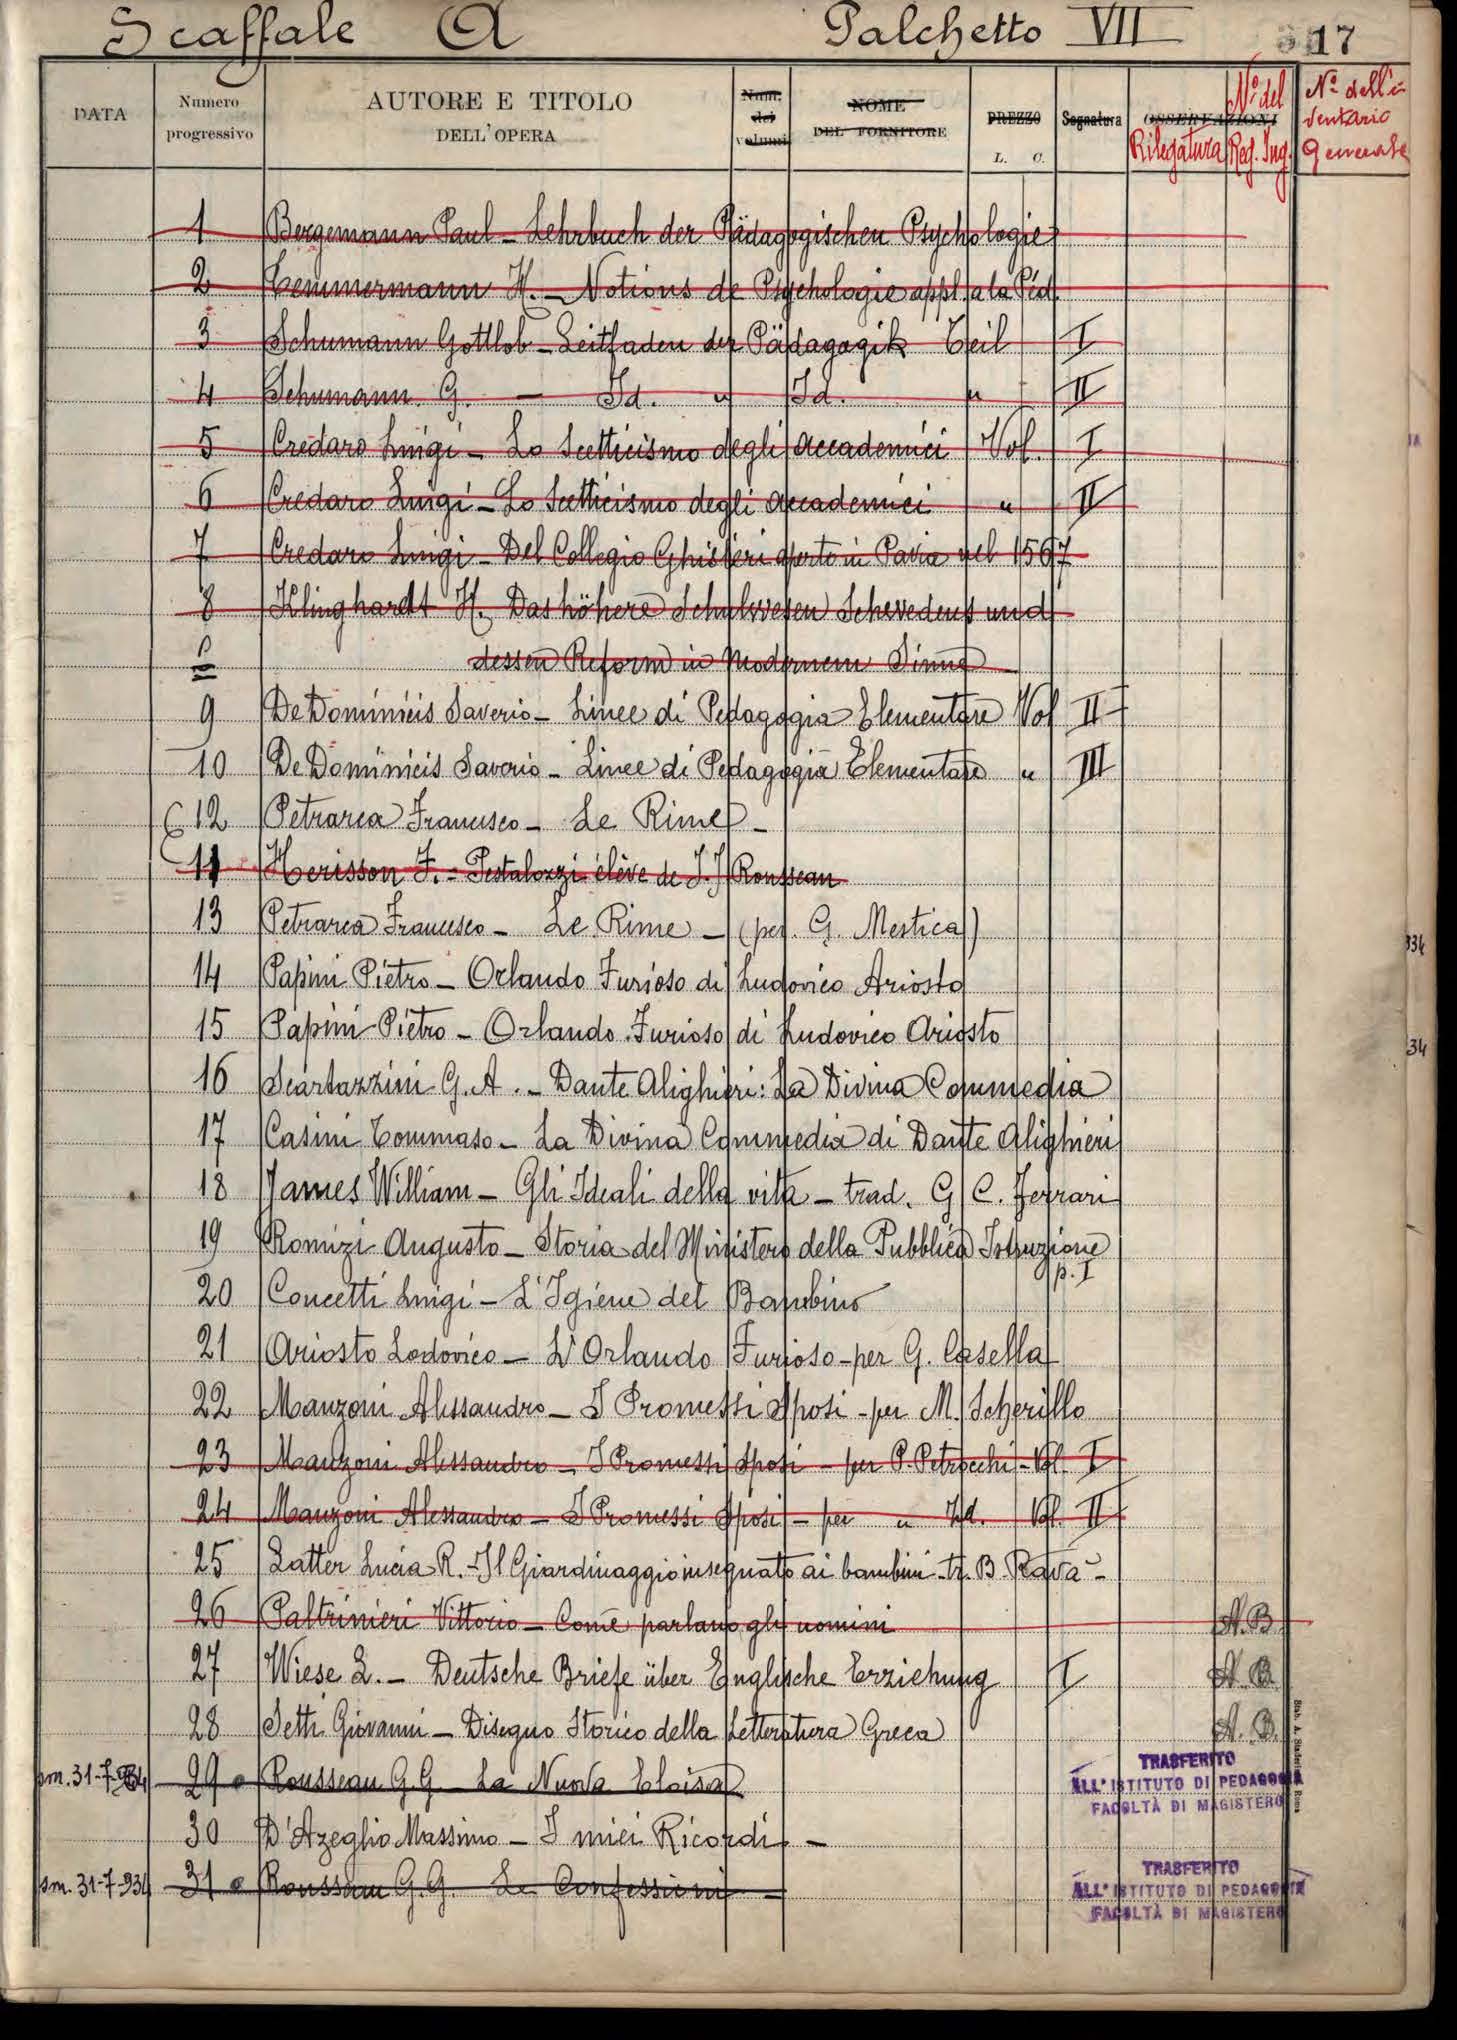 Scaffale A Palchetto VII 17
DATA Numero progressivo AUTORE E TITOLO DELL'OPERA Num. dei volumi NOME DEL FORNITORE PREZZO L. C. Segnatura OSSERVAZIONI Rilegatura No. del Reg. Ing. No. dell'inventario Generale
1 Bergemann Paul - Lehrbuch der Pädagogischen Psychologie
2 Temmermann H. - Notions de Psychologie appl. a la Péd.
3 Schumann Gottlob - Leitfaden der Pädagogik Teil I
4 Schumann G. - Id. " Id. " II
5 Credaro Luigi - Lo Scetticismo degli Accademici Vol. I
6 Credaro Luigi - Lo Scetticismo degli Accademici " II
7 Credaro Luigi - Del Collegio Ghislieri aperto in Pavia nel 1567
8 Klinghardt H. Das höhere Schulwesen Schwedens und
dessen Reform in Modernem Sinne
9 De Dominicis Saverio - Linee di Pedagogia Elementare Vol II
10 De Dominicis Saverio - Linee di Pedagogia Elementare " III
12 Petrarca Francesco - Le Rime -
11 Herisson F. - Pestalozzi élève de J. J Rousseau
13 Petrarca Francesco - Le Rime - (per G. Mestica)
14 Papini Pietro - Orlando Furioso di Ludovico Ariosto
15 Papini Pietro - Orlando Furioso di Ludovico Ariosto
16 Scartazzini G. A. - Dante Alighieri: La Divina Commedia
17 Casini Tommaso - La Divina Commedia di Dante Alighieri
18 James William - Gli Ideali della vita - trad. G. C. Ferrari
19 Romizi Augusto - Storia del Ministero della Pubblica Istruzione
p. I
20 Concetti Luigi - L'Igiene del Bambino
21 Ariosto Lodovico - L'Orlando Furioso - per G. Casella
22 Manzoni Alessandro - I Promessi Sposi - per M. Scherillo
23 Manzoni Alessandro - I Promessi Sposi - per P. Petrocchi - Vol. I
24 Manzoni Alessandro - I Promessi Sposi - per " Id. Vol. II
25 Latter Lucia R. - Il Giardinaggio insegnato ai bambini - tr. B. Ravà -
26 Paltrinieri Vittorio - Come parlano gli uomini A. B.
27 Wiese L. - Deutsche Briefe über Englische Erziehung I A. B.
28 Setti Giovanni - Disegno Storico della Letteratura Greca A. B.
sm. 31-7-934 29 Rousseau G. G. - La Nuova Eloisa
TRASFERITO
ALL'ISTITUTO DI PEDAGOGIA
FACOLTÀ DI MAGISTERO
30 D'Azeglio Massimo - I miei Ricordi -
sm. 31-7-934 31 Rousseau G. G. Le Confessioni -
TRASFERITO
ALL'ISTITUTO DI PEDAGOGIA
FACOLTÀ DI MAGISTERO
334
34